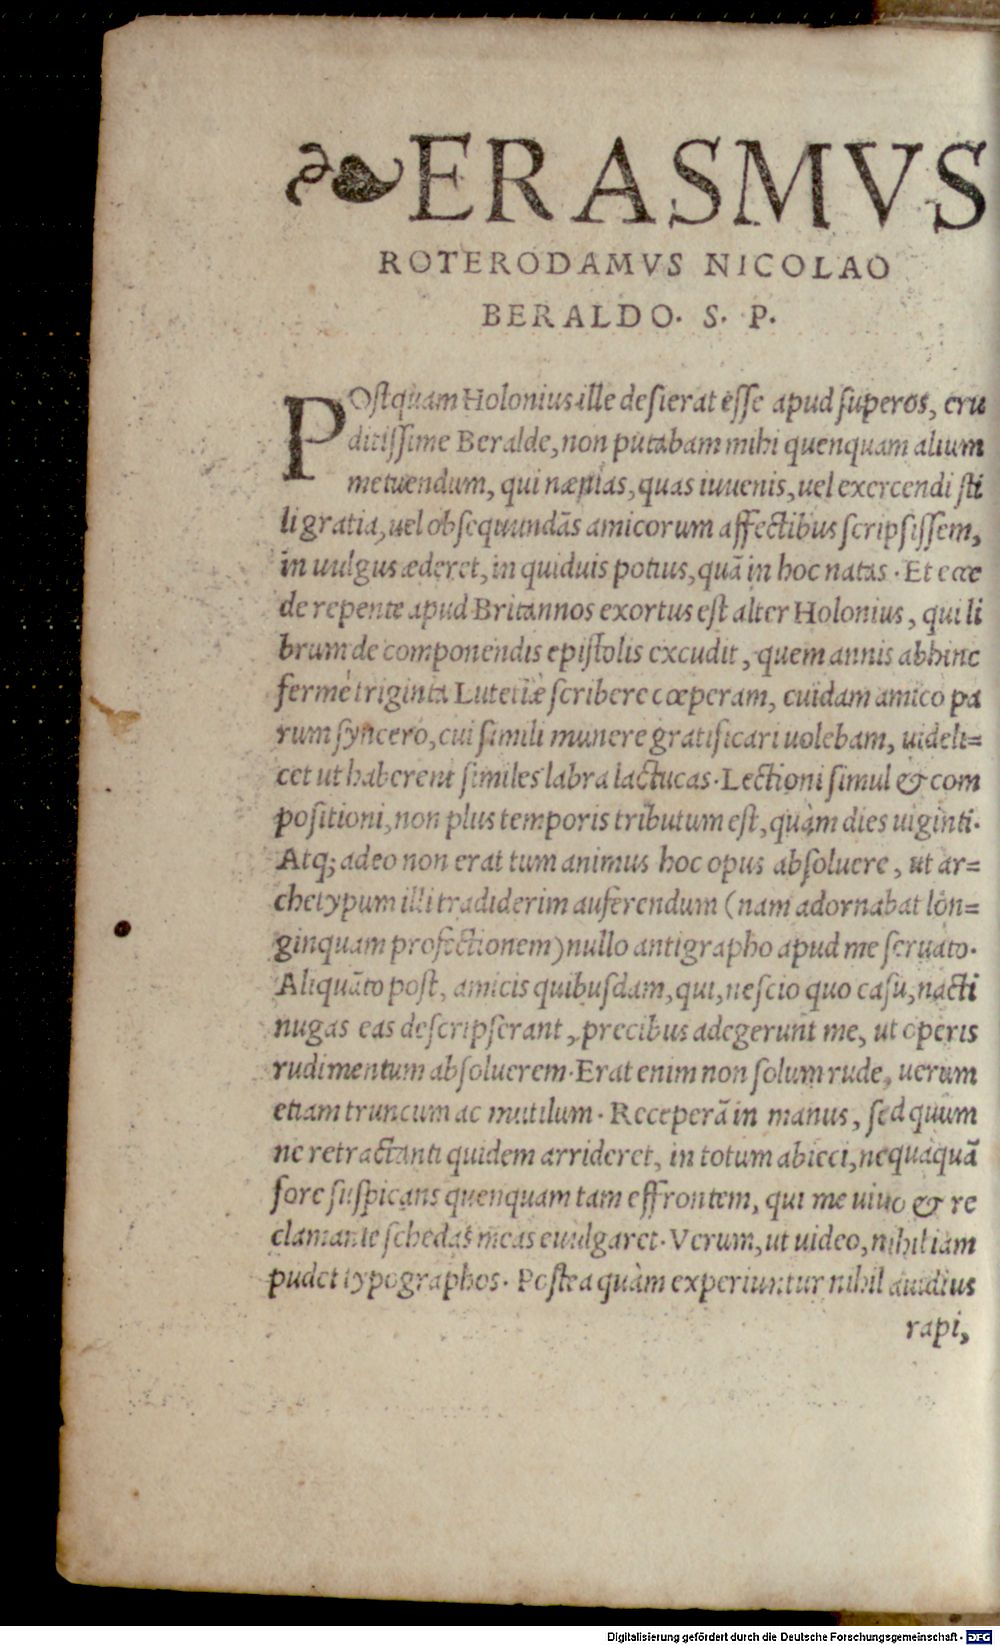 ❧ERASMVS
ROTERODAMVS NICOLAO
BERALDO. S. P.
POſtquam Holonius ille deſierat eſſe apud ſuperos, eru
ditiſſime Beralde, non putabam mihi quenquam alium
metuendum, qui nænias, quas iuuenis, uel exercendi ſti
li gratia, uel obſequundãs amicorum affectibus ſcripſiſſem,
in uulgus æderet, in quiduis potius, quã in hoc natas. Et ecce
de repente apud Britannos exortus eſt alter Holonius, qui li
brum de componendis epiſtolis excudit, quem annis abhinc
fermè triginta Lutetiæ ſcribere cœperam, cuidam amico pa
rum ſyncero, cui ſimili munere gratificari uolebam, uideli=
cet ut haberent ſimiles labra lactucas. Lectioni ſimul & com
poſitioni, non plus temporis tributum eſt, quàm dies uiginti.
Atq; adeo non erat tum animus hoc opus abſoluere, ut ar=
chetypum illi tradiderim auferendum (nam adornabat lon=
ginquam profectionem) nullo antigrapho apud me ſeruato.
Aliquãto poſt, amicis quibuſdam, qui, neſcio quo caſu, nacti
nugas eas deſcripſerant, precibus adegerunt me, ut operis
rudimentum abſoluerem. Erat enim non ſolum rude, uerum
etiam truncum ac mutilum. Receperã in manus, ſed quum
ne retractanti quidem arrideret, in totum abieci, nequaquã
fore ſuſpicans quenquam tam effrontem, qui me uiuo & re
clamante ſchedas meas euulgaret. Verum, ut uideo, nihil iam
pudet typographos. Poſtea quàm experiuntur nihil auidius
rapi,
Digitalisierung gefördert durch die Deutsche Forschungsgemeinschaft - DFG